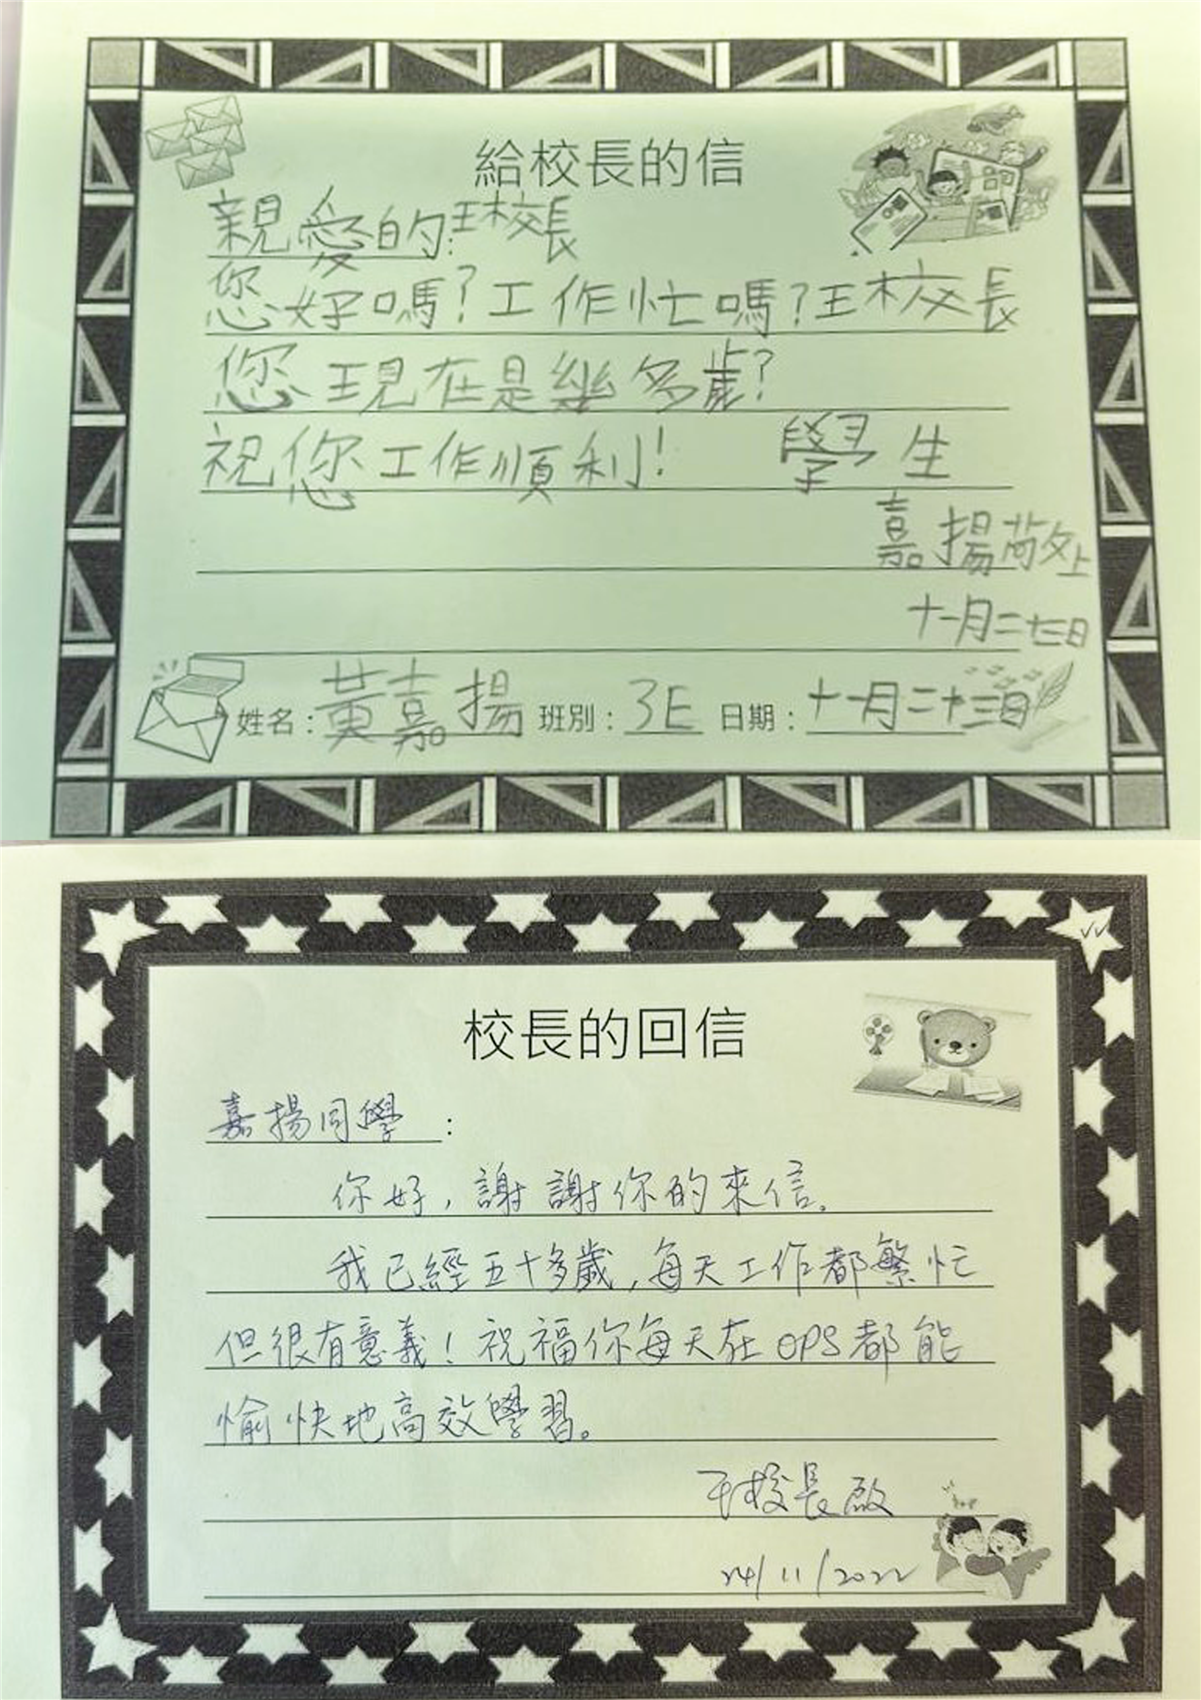 給校長的信
親愛的:王校長
您好嗎?工作忙嗎?王校長
您現在是幾多歲?
祝您工作順利! 學生
嘉揚敬上
姓名:黃嘉揚 班別:3E 日期:十一月二十三日
校長的回信
嘉揚同學:
你好,謝謝你的來信。
我已經五十多歲,每天工作都繁忙
但很有意義!祝福你每天在OPS都能
愉快地高效學習。
王校長啟
24/11/2022